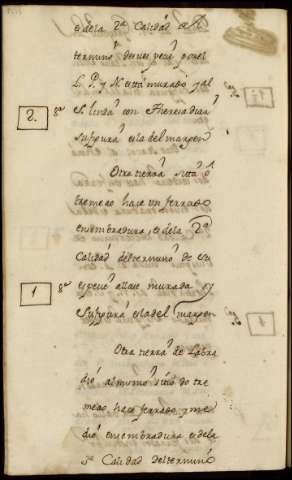 es dela 2ª Calidad del
termino de su especie por el
L. P. y N. está murado y al
S. linda con Theresa
su figura es la del margen
2. 8ª
Otra tierra sitta
tremeao hace un ferrado
en sembradura, es dela 2ª
Calidad del termino de su
especie allase murada y
su figura es la del margen
1 8ª
Otra tierra de Labra
dio al mismo sitio do tre
meao hace ferrado y me
dio en sembradura es dela
3ª Calidad del termino